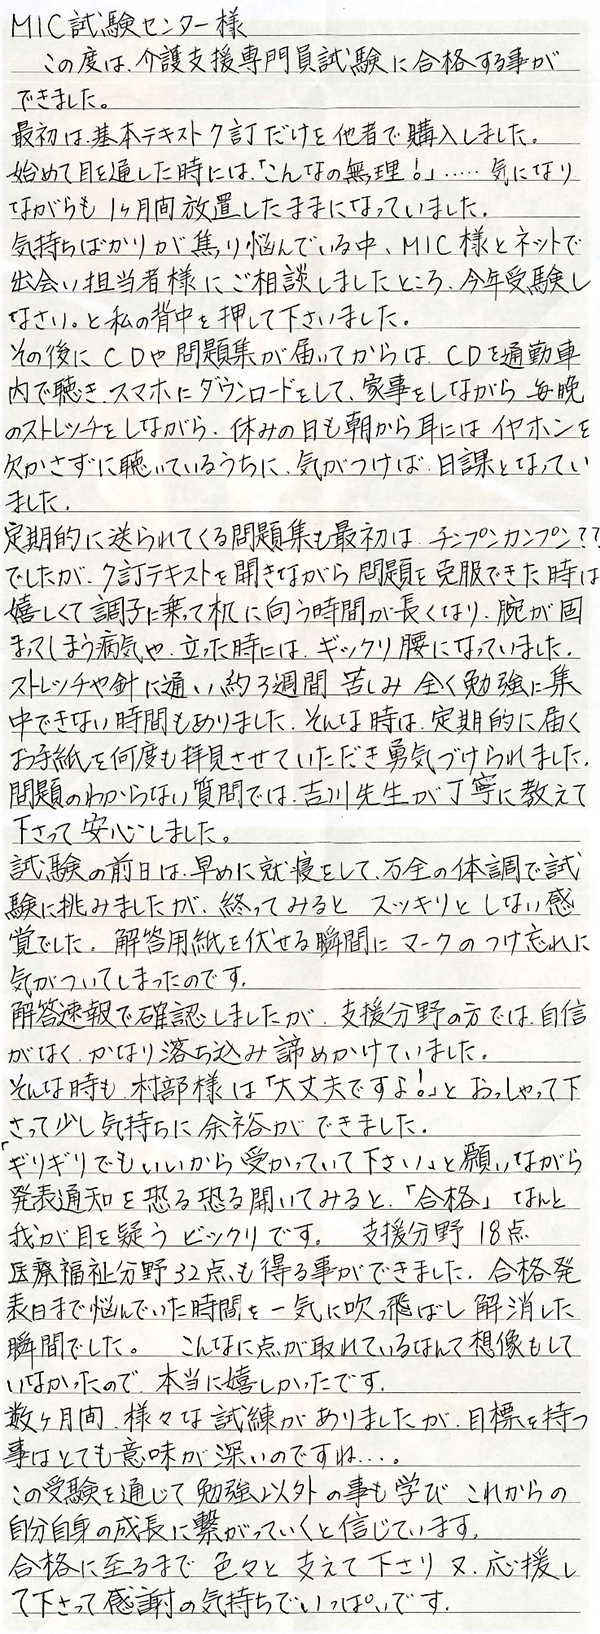 MIC試験センター様
この度は、介護支援専門員試験に合格する事が
できました。
最初は、基本テキスト7訂だけを他者で購入しました。
始めて目を通した時には、「こんなの無理!」……気になり
ながらも1ヶ月間放置したままになっていました。
気持ちばかりが焦り悩んでいる中、MIC様とネットで
出会い担当者様にご相談しましたところ、今年受験し
なさい。と私の背中を押して下さいました。
その後にCDや問題集が届いてからは、CDを通勤車
内で聴き、スマホにダウンロードをして、家事をしながら、毎晩
のストレッチをしながら、休みの日も朝から耳にはイヤホンを
欠かさずに聴いているうちに、気がつけば、日課となってい
ました。
定期的に送られてくる問題集も最初は、チンプンカンプン??
でしたが、7訂テキストを開きながら問題を克服できた時は
嬉しくて調子に乗って机に向う時間が長くなり、腕が固
まってしまう病気や、立った時には、ギックリ腰になっていました。
ストレッチや針に通い約3週間苦しみ全く勉強に集
中できない時間もありました。そんな時は、定期的に届く
お手紙を何度も拝見させていただき勇気づけられました。
問題のわからない質問では、吉川先生が丁寧に教えて
下さって安心しました。
試験の前日は、早めに就寝をして、万全の体調で試
験に挑みましたが、終ってみるとスッキリとしない感
覚でした。解答用紙を伏せる瞬間にマークのつけ忘れに
気がついてしまったのです。
解答速報で確認しましたが、支援分野の方では、自信
がなく、かなり落ち込み諦めかけていました。
そんな時も、村部様は「大丈夫ですよ!」とおっしゃって下
さって少し気持ちに余裕ができました。
「ギリギリでもいいから受かっていて下さい」と願いながら
発表通知を恐る恐る開いてみると、「合格」なんと
我が目を疑うビックリです。 支援分野18点
医療福祉分野32点も得る事ができました。合格発
表日まで悩んでいた時間を一気に吹っ飛ばし解消した
瞬間でした。 こんなに点が取れているなんて想像もして
いなかったので、本当に嬉しかったです。
数ヶ月間、様々な試練がありましたが、目標を持つ
事はとても意味が深いのですね…。
この受験を通じて勉強以外の事も学びこれからの
自分自身の成長に繋がっていくと信じています。
合格に至るまで色々と支えて下さり又、応援し
て下さって感謝の気持ちでいっぱいです。